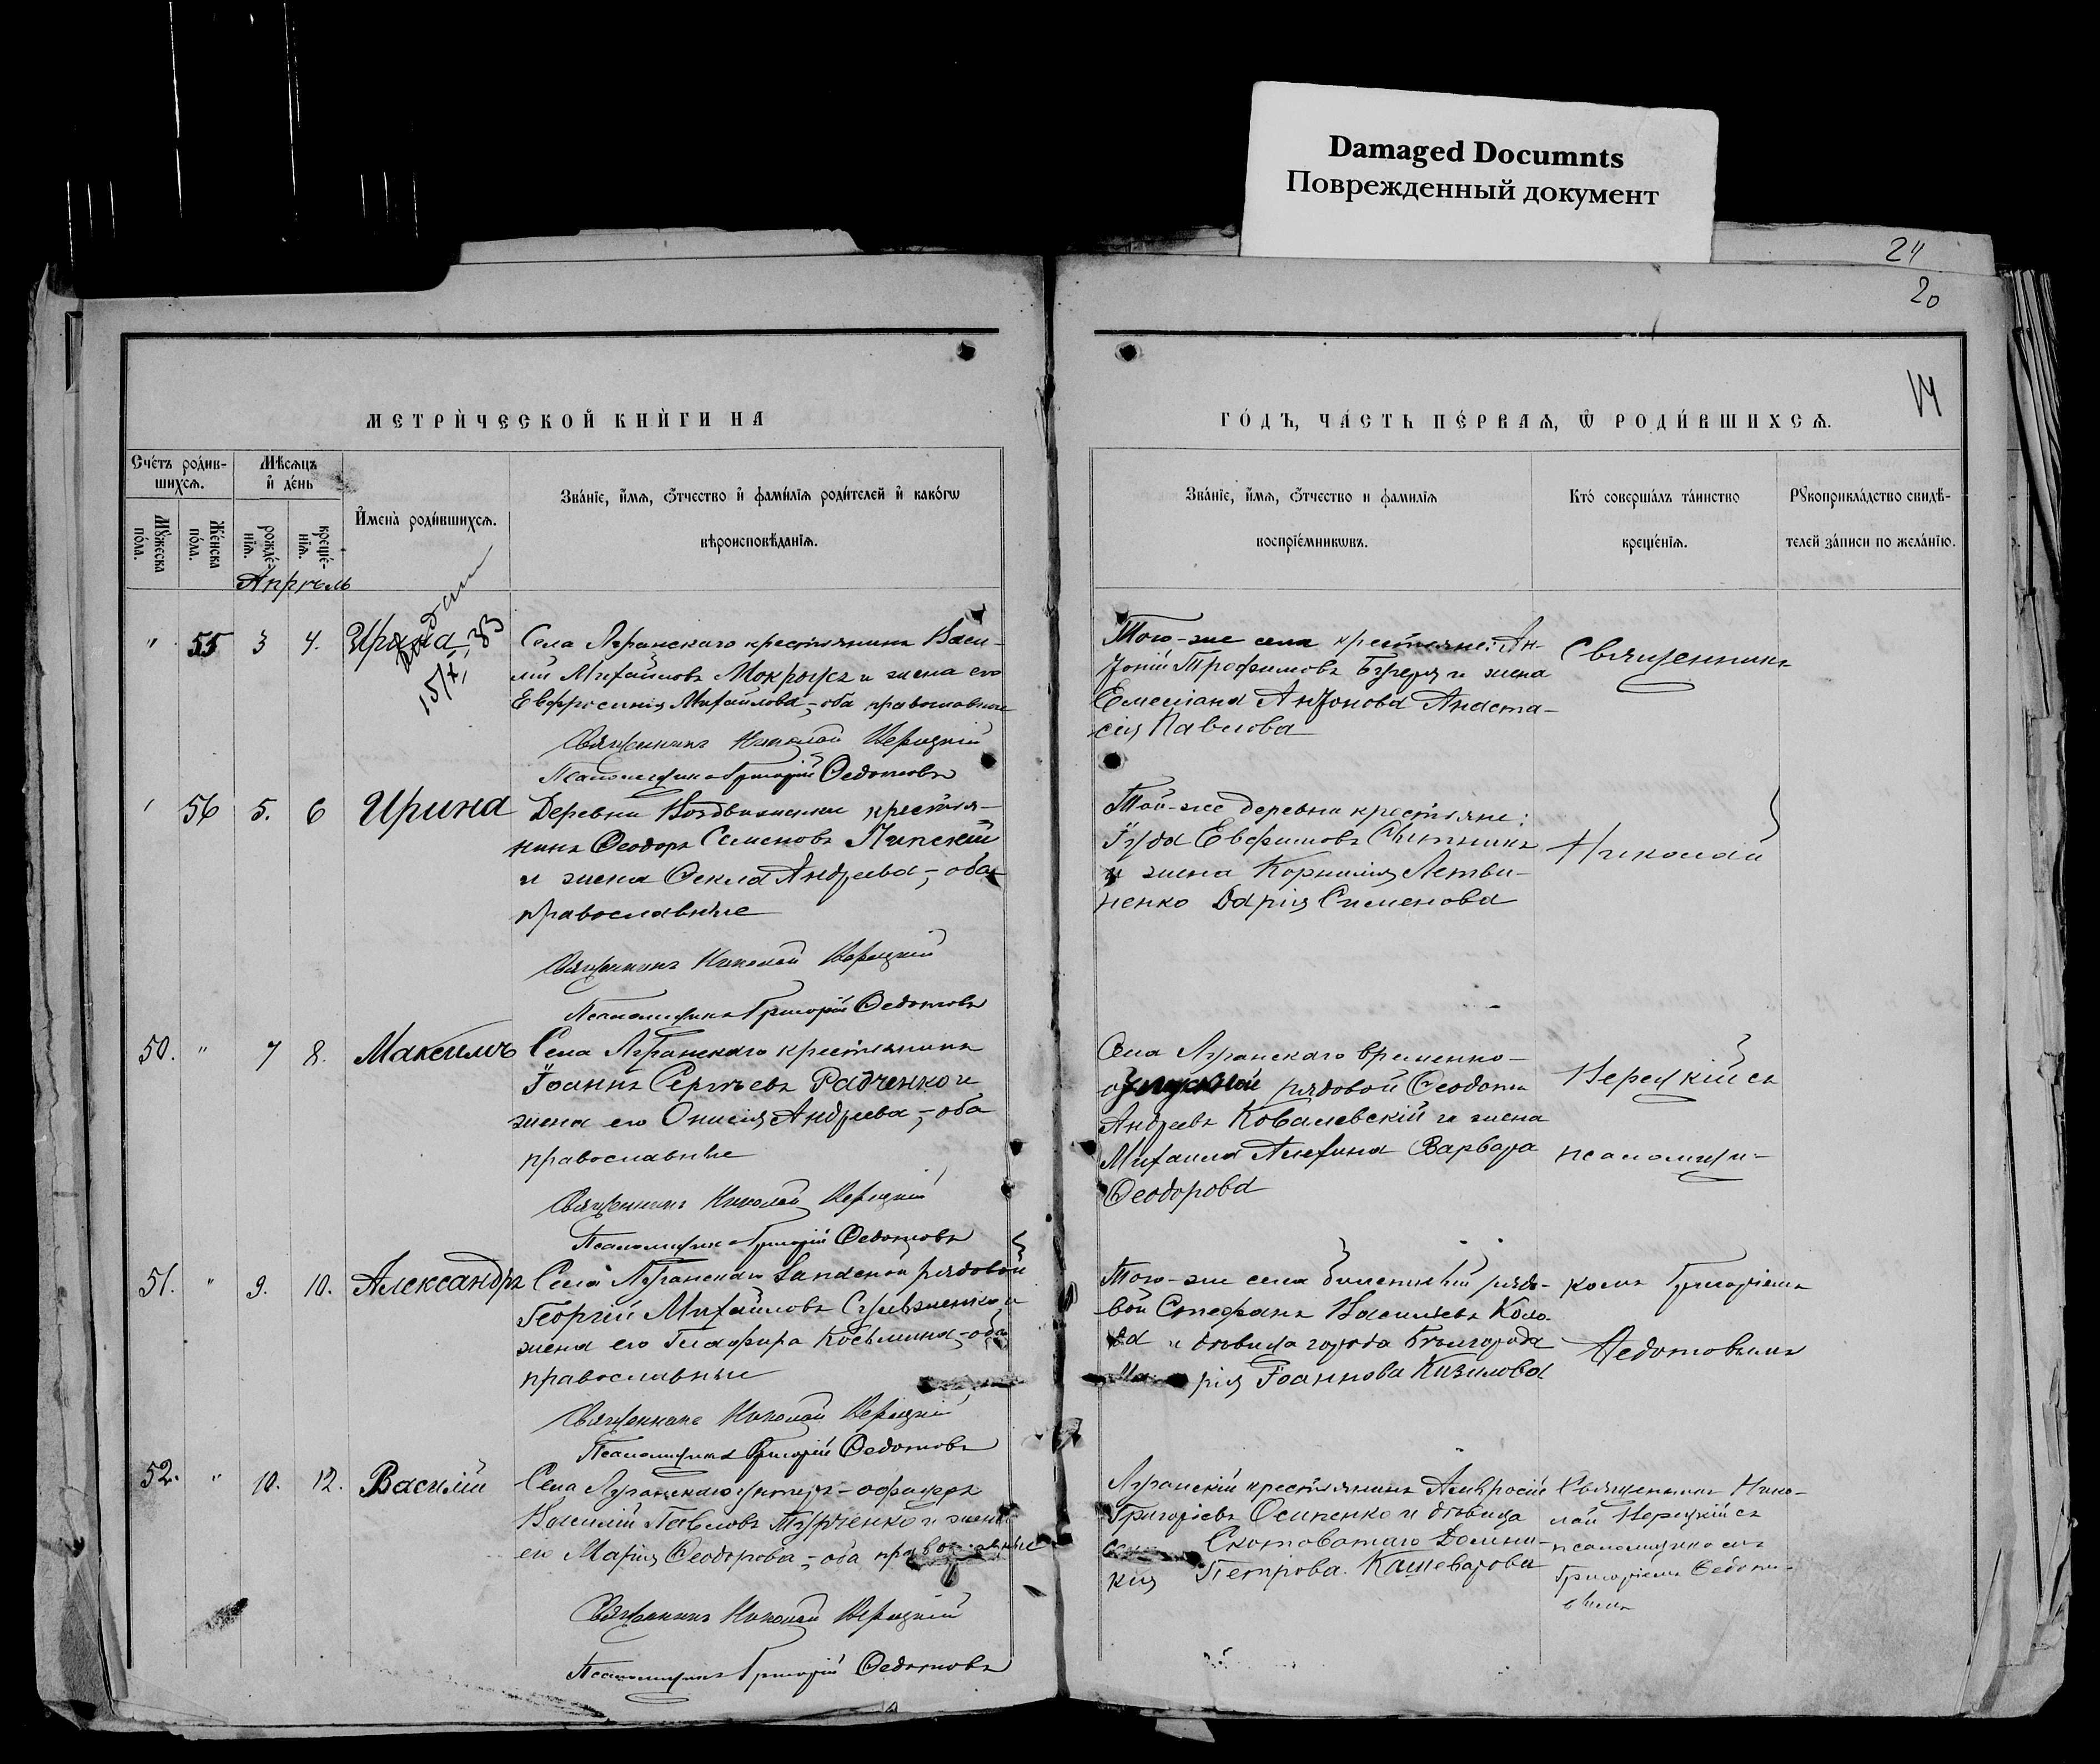 Damaged Documnts
Поврежденный документ
24
20
МЕТРИ́ЧЕСКОЙ КНИ́ГИ НА
ГО́ДЪ, ЧА́СТЬ ПЕ́РВАѦ, Ѿ РОДИ́ВШИХСѦ.
Сче́тъ роди́в-
шихсѧ.
Мꙋ́жеска
по́ла.
Же́нска
по́ла.
Мѣ́сѧцъ
и҆ де́нь
рожде́-
нїѧ.
креще́-
нїѧ.
И҆мена̀ роди́вшихсѧ.
Зва́нїе, и҆́мѧ, ѻ҆́тчество и҆ фами́лїѧ роди́телей и҆ како́гѡ
вѣроисповѣ́данїѧ.
Зва́нїе, и҆́мѧ, ѻ҆́тчество и фами́лїѧ
воспрїе́мникѡвъ.
Кто̀ соверша́лъ та́инство
креще́нїѧ.
Рꙋкоприкла́дство свидѣ́-
телей за́писи по жела́нїю.
Апрѣль
" 55 3 4. Ирина
Села Луганскаго крестьянинъ Васи-
лій Михайловъ Мокроусъ и жена его
Евфросинія Михайлова, - оба православные
Священникъ Николай Верецкій
Псаломщикъ Григорій Ѳедотовъ
Того-же села крестьяне: Ан-
тоній Трофимовъ и жена
Емеліана Антонова Анаста-
сія Павлова
Священникъ
56 5. 6 Ирина
Деревни Воздвиженки крестья-
нинъ Ѳеодоръ Семеновъ Липскій
и жена Ѳекла Андреева, - оба
православные
Священникъ Николай Верецкій
Псаломщикъ Григорій Ѳедотовъ
Той-же деревни крестьяне:
Іуда Евфимовъ Сытникъ
и жена Корнилія Летви-
ненко Дарія Сименова
Николай
50. " 7 8. Максимъ
Села Луганскаго крестьянинъ
Іоаннъ Сергѣевъ Радченко и
жена его Онисія Андреева, - оба
православные
Священникъ Николай Верецкій
Псаломщикъ Григорій Ѳедотовъ
Села Луганскаго временно-
отпускной рядовой Ѳеодотъ
Андреевъ Ковалевскій и жена
Михаила Алехина Варвара
Ѳеодорова
Верецкій съ
псаломщи-
51. " 9. 10. Александръ
Села Луганскаго запасной рядовой
Георгій Михайловъ и
жена его Глафира Косьмина, - оба
православные
Священникъ Николай Верецкій
Псаломщикъ Григорій Ѳедотовъ
Того-же села билетный рядо-
вой Стефанъ Васильевъ Коло-
да и дѣвица города Бѣлгорода
Марія Іоаннова Кизилова
комъ Григоріемъ
Ѳедотовымъ
52. " 10. 12. Василій
Села Луганскаго унтеръ-офицеръ
Василій Павловъ Турченко и жена
его Марія Ѳеодорова, - оба православные
Священникъ Николай Верецкій
Псаломщикъ Григорій Ѳедотовъ
Луганскій крестьянинъ Амвросій
Григоріевъ Осипенко и дѣвица
села Скотоватаго Домни-
кія Петрова Кашеварова
Священникъ Нико-
лай Верецкій съ
псаломщикомъ
Григоріемъ Ѳедото-
вымъ